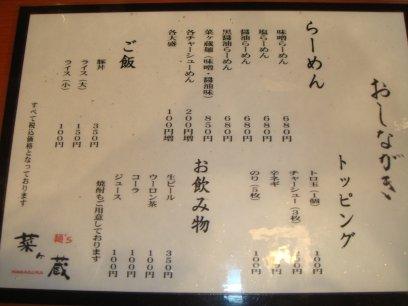 おしながき
らーめん
味噌らーめん 680円
塩らーめん 680円
醤油らーめん 680円
黒醤油らーめん 680円
菜ヶ蔵麺（味噌・醤油味） 850円
各チャーシューめん 200円増
各大盛 100円増
ご飯
豚丼 350円
ライス（大） 150円
ライス（小） 100円
すべて税込価格となっております
トッピング
トロ玉（1個） 100円
チャーシュー（3枚）
辛ネギ 100円
のり（5枚） 100円
お飲み物
生ビール 350円
ウーロン茶 100円
コーラ 100円
ジュース 100円
焼酎もご用意しております
麺's
菜ヶ蔵
NAGAKURA